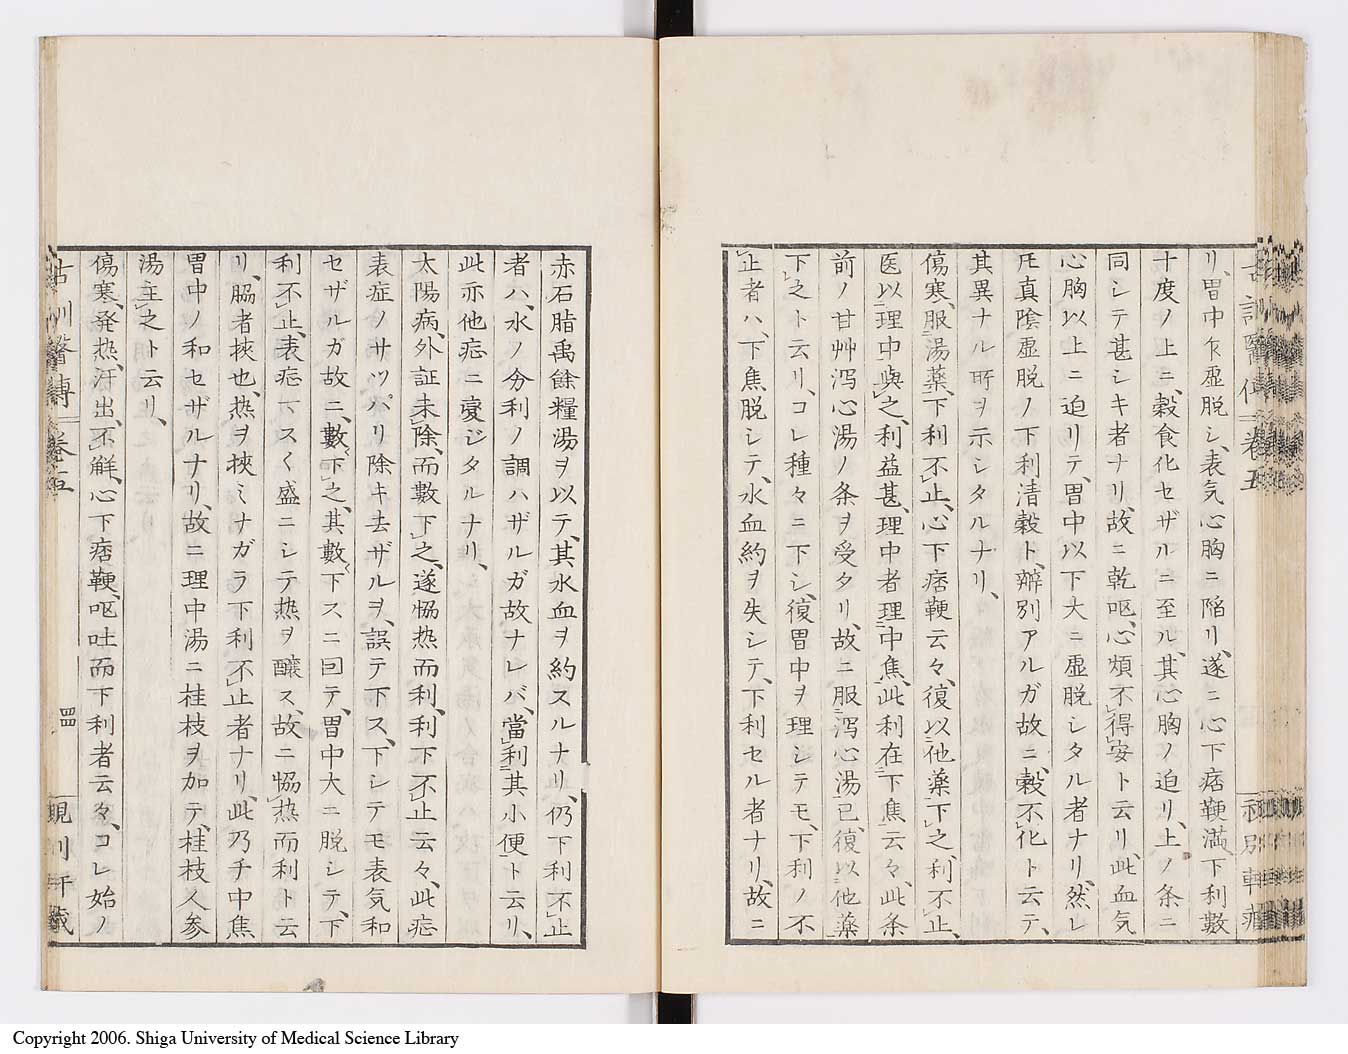 リ、胃中乍虚脱シ、表気心胸ニ陥リ、遂ニ心下痞鞕満、下利數
十度ノ上ニ、穀食化セザルニ至ル、其心胸ノ迫リ、上ノ条ニ
同シテ甚シキ者ナリ、故ニ乾呕、心煩不得安ト云リ、此血気
心胸以上ニ迫リテ、胃中以下大ニ虚脱シタル者ナリ、然レ
𪜈真陰虚脱ノ下利清穀ト、辨別アルガ故ニ、穀不化ト云テ、
其異ナル所ヲ示シタルナリ、
傷寒、服湯薬、下利不止、心下痞鞕云々、復以他薬下之、利不止、
医以理中與之、利益甚、理中者理中焦、此利在下焦云々、此条
前ノ甘艸瀉心湯ノ条ヲ受タリ、故ニ服瀉心湯已、復以他薬
下之ト云リ、コレ種々ニ下シ、復胃中ヲ理シテモ、下利ノ不
止者ハ、下焦脱シテ、水血約ヲ失シテ、下利セル者ナリ、故ニ
赤石脂禹餘糧湯ヲ以テ、其水血ヲ約スルナリ、仍下利不止
者ハ、水ノ分利ノ調ハザルガ故ナレバ、當利其小便ト云リ、
此亦他症ニ変ジタルナリ、
太陽病、外証未除、而數下之、遂恊熱而利、利下不止云々、此症
表症ノサッパリ除キ去ザルヲ、誤テ下ス、下シテモ表気和
セザルガ故ニ、數下之、其數〱下スニ囙テ、胃中大ニ脱シテ、下
利不止、表症マスく盛ニシテ熱ヲ醸ス、故ニ恊熱而利ト云
リ、脇者挾也、熱ヲ挾ミナガラ下利不止者ナリ、此乃チ中焦
胃中ノ和セザルナリ、故ニ理中湯ニ桂枝ヲ加テ、桂枝人参
湯主之ト云リ、
傷寒、発熱、汗出、不解、心下痞鞕、呕吐而下利者云々、コレ始ノ
古訓醫傳 巻五
四